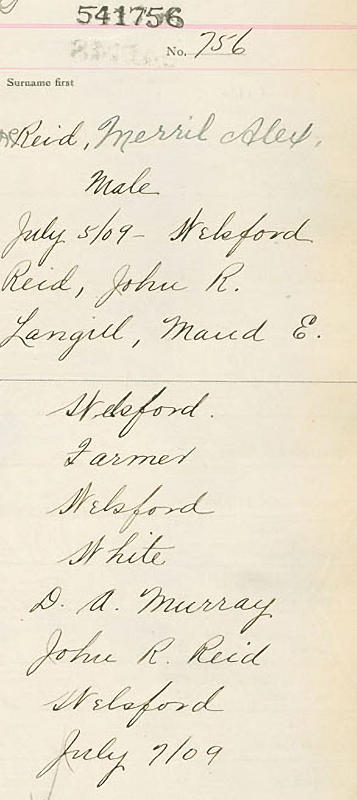 541756
No. 756
Surname first
Reid, Merril Alex.
Male
July 5/09 - Welsford
Reid, John R.
Langill, Maud E.
Welsford.
Farmer
Welsford
White
D. A. Murray
John R. Reid
Welsford
July 7/09